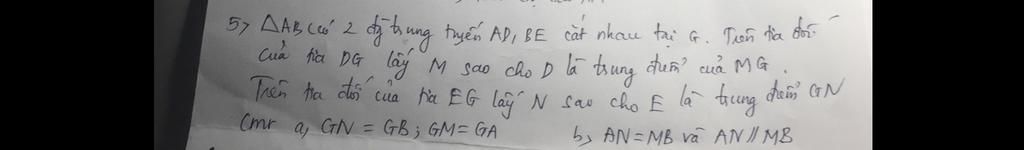 5, △ABC có 2 đg trung tuyến AD, BE cắt nhau tại G. Trên tia đối
của tia DG lấy M sao cho D là trung điểm của MG.
Trên tia đối của tia EG lấy N sao cho E là trung điểm GN
Cmr a, GN = GB; GM = GA b, AN = MB và AN // MB